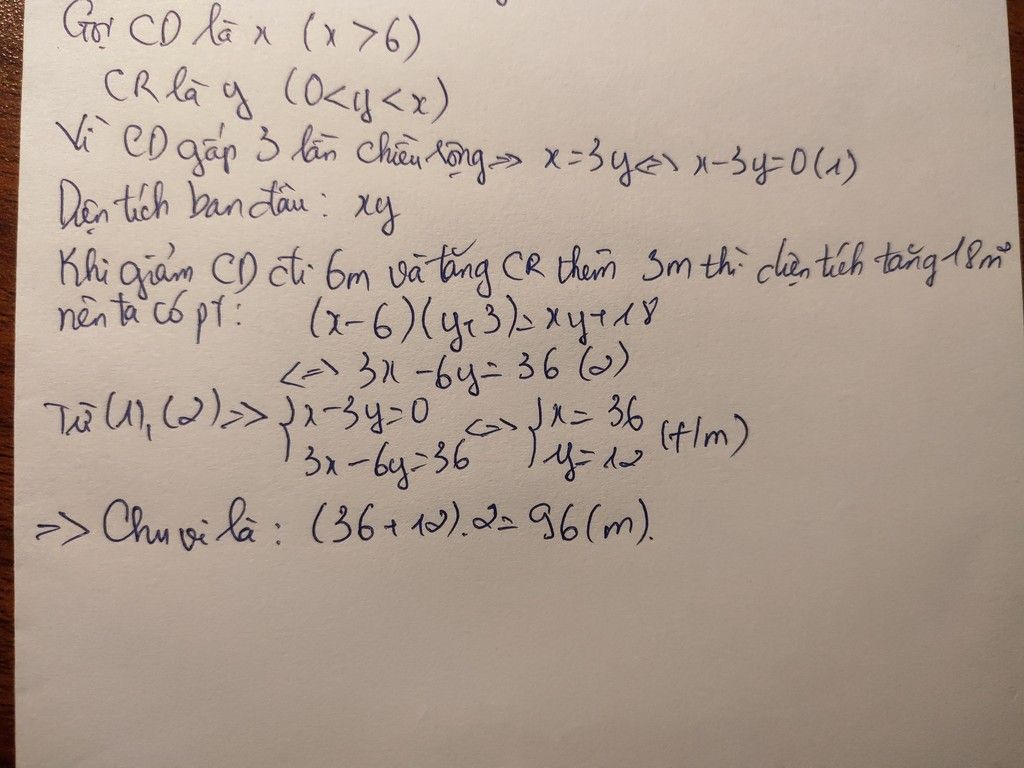 Gọi CD là x (x > 6)
CR là y (0 < y < x)
Vì CD gấp 3 lần chiều rộng => x = 3y <=> x - 3y = 0 (1)
Diện tích ban đầu: xy
Khi giảm CD đi 6m và tăng CR thêm 3m thì diện tích tăng 18m²
nên ta có pt: (x - 6)(y + 3) = xy + 18
<=> 3x - 6y = 36 (2)
Từ (1), (2) => { x - 3y = 0 <=> { x = 36
3x - 6y = 36 y = 12 (t/m)
=> Chu vi là: (36 + 12).2 = 96 (m).